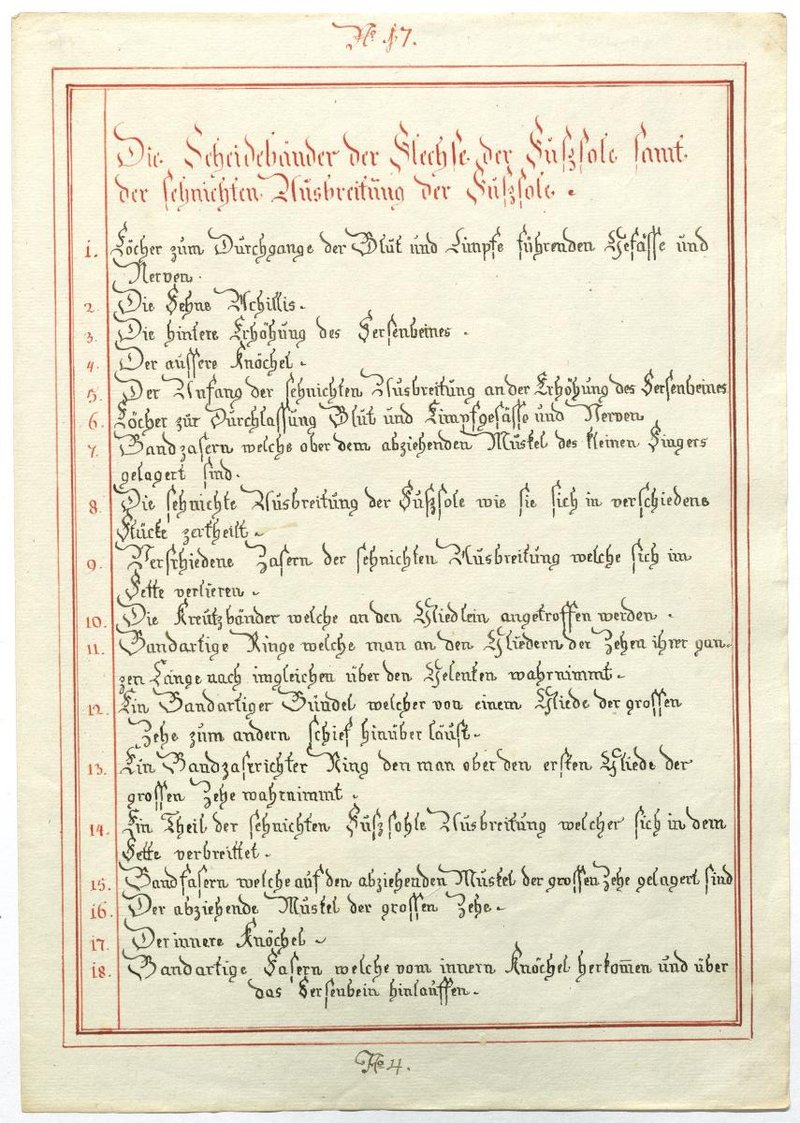 No 17.
Die Scheidebänder der Flechse der Fußsole samt
der sehnichten Ausbreitung der Fußsole.
1. Löcher zum Durchgange der Blut und Limpfe führenden Gefässe und
Nerven.
2. Die Sehne Achillis.
3. Die hintere Erhöhung des Fersenbeines.
4. Der aussere Knöchel.
5. Der Anfang der sehnichten Ausbreitung an der Erhöhung des Fersenbeines
6. Löcher zur Durchlassung Blut und Limpfgefässe und Nerven
7. Bandzasern welche ober dem abziehenden Muskel des kleinen Fingers
gelagert sind.
8. Die sehnichte Ausbreitung der Fußsole wie sie sich in verschiedene
Stücke zertheilt.
9. Verschiedene Zasern der sehnichten Ausbreitung welche sich im
Fette verlieren.
10. Die Kreutzbänder welche an den Gliedlein angetroffen werden.
11. Bandartige Ringe welche man an den Gliedern der Zehen ihrer gan-
zen Länge nach imgleichen über den Gelenken wahrnimmt.
12. Ein Bandartiger Bündel welcher von einem Gliede der grossen
Zehe zum andern schief hinüber läuft.
13. Ein Bandzasrichter Ring den man ober den ersten Gliede der
grossen Zehe wahrnimmt.
14. Ein Theil der sehnichten Fußsohle Ausbreitung welcher sich in dem
Fette verbreittet.
15. Bandfasern welche auf den abziehenden Muskel der grossen Zehe gelagert sind
16. Der abziehende Muskel der grossen Zehe.
17. Der innere Knöchel
18. Bandartige Fasern welche vom innern Knöchel herkom̄en und über
das Fersenbein hinlauffen.
No 4.